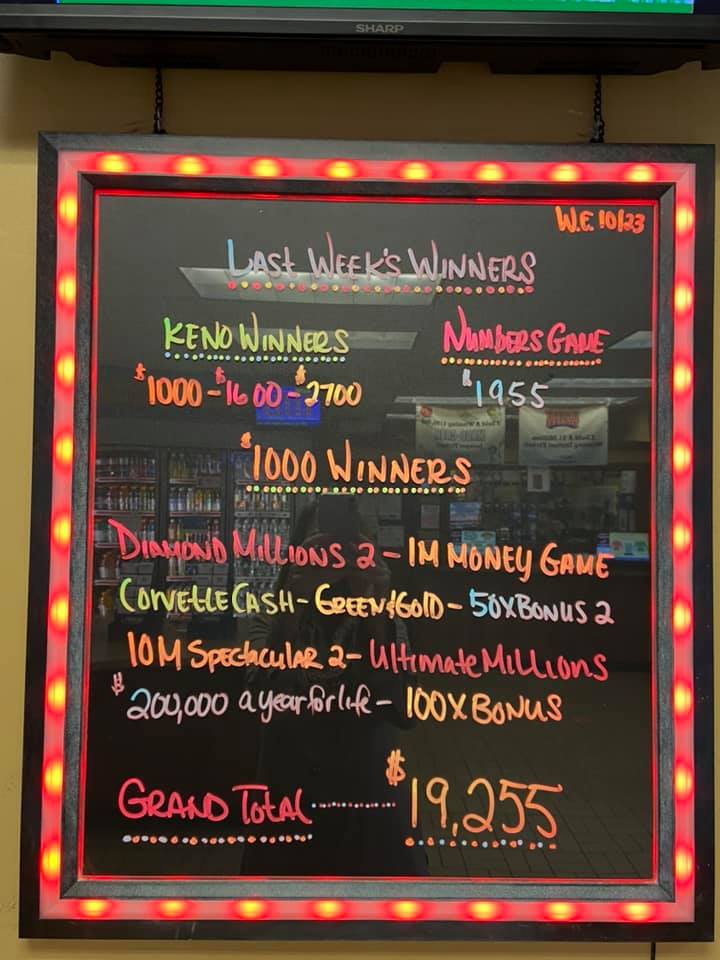 SHARP
W.E. 10/23
LAST WEEK'S WINNERS
KENO WINNERS
NUMBERS GAME
$1000 - $1600 - $2700
$1955
$1000 WINNERS
DIAMOND MILLIONS 2 - 1M MONEY GAME
CORVETTE CASH - GREEN & GOLD - 50X BONUS 2
10M SPECTACULAR 2 - Ultimate Millions
$200,000 a year for life - 100X BONUS
GRAND TOTAL ........ $19,255